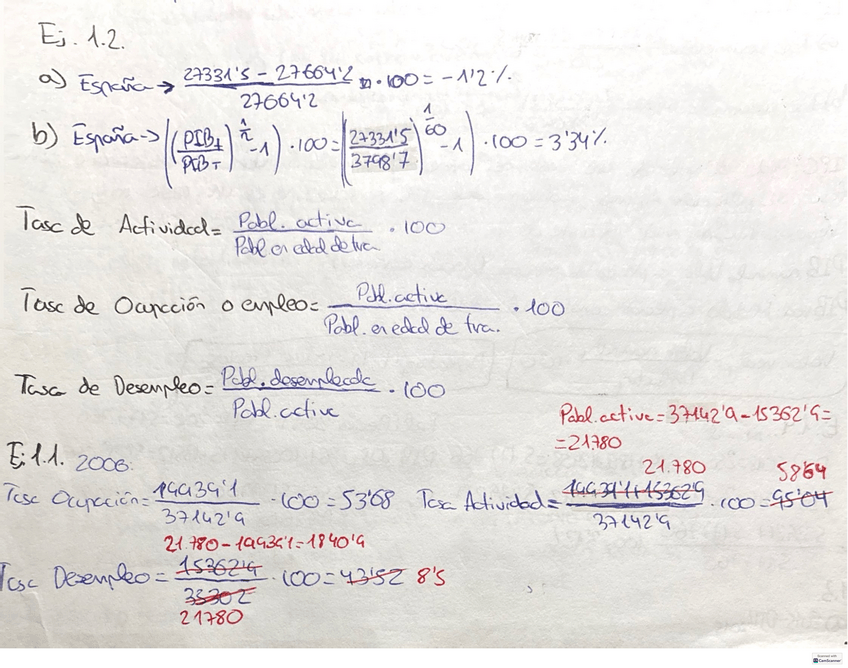 Ej. 1.2.
a) España → (27331'5 - 27664'2) / 27664'2 · 100 = -1'2%
b) España → ((PIB_t / PIB_T)^(1/n) - 1) · 100 = ((27331'5 / 3798'7)^(1/60) - 1) · 100 = 3'34%
Tasa de Actividad = Pobl. activa / Pobl en edad de tra. · 100
Tasa de Ocupación o empleo = Pobl. activa / Pobl. en edad de tra. · 100
Tasa de Desempleo = Pobl. desempleada / Pobl. activa · 100
Pobl. activa = 37142'9 - 15362'9 =
= 21780
Ej 1.1. 2006.
21.780 58'64
Tasa Ocupación = 19939'1 / 37142'9 · 100 = 53'68 Tasa Actividad = 19939'1 + 15362'9 / 37142'9 · 100 = 95'04
21.780 - 19939'1 = 1840'9
Tasa Desempleo = 15362'9 / 35302 · 100 = 43'52 8'5
21780
Scanned with
CamScanner